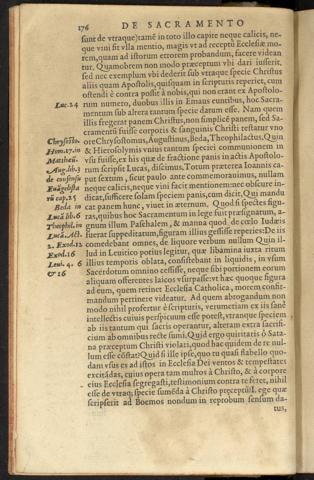 176 DE SACRAMENTO
sunt de vtraque) tamē in toto illo capite neque calicis, ne-
que vini fit vlla mentio, magis vt ad receptū Ecclesiæ mo-
rem, quam ad istorum errorem probandum, facere videan
tur. Quamobrem non modo præceptum vbi dari iusserit,
sed nec exemplum vbi dederit sub vtraque specie Christus
aliis quam Apostolis, quisquam in scripturis reperiet, cum
ostendi è contra posse à nobis, qui non erant ex Apostolo-
Luc. 24 rum numero, duobus illis in Emaus euntibus, hoc Sacra-
mentum sub altera tantum specie datum esse. Nam quem
illis fregerat panem Christus, non simplicē panem, sed Sa-
cramentū fuisse corporis & sanguinis Christi testatur vno
Chrysosto. ore Chrysostomus, Augustinus, Beda, Theophilactus. Quin
Hom. 17. in & Hierosolymis vnius tantum speciei communionem in
Mattheū. vsu fuisse, ex his quæ de fractione panis in actis Apostolo-
Aug. lib. 3 rum scripsit Lucas, discimus, Totum præterea Ioannis ca-
de consensu put sextum, sicut paulo ante commemorauimus, nullam
Euāgelista neque calicis, neque vini facit mentionem: nec obscure in-
rū cap. 25 dicat, suffecere solam speciem panis, cum dicit, Qui mandu
Beda in cat panem hunc, viuet in æternum. Quod si spectes figu-
Lucā lib. 6 ras, quibus hoc Sacramentum in lege fuit præsignatum, a-
Theophil. in gnum illum Paschalem, & manna quod de cœlo Iudæis
Lucā. Act. fuerat suppeditatum, figuram illius gessisse reperies: De iis
2. Exod. 12 comedebant omnes, de liquore verbum nullum Quin il-
Exod. 16 lud in Leuitico potius legitur, quæ libamina iuxta ritum
Leui. 4. 6 illius temporis oblata, consistebant in liquidis, in vsum
& 16 Sacerdotum omnino cessisse, neque sibi portionem eorum
aliquam offerentes laicos vsurpasse: vt hæc quoque figura
ad eum, quem retinet Ecclesia Catholica, morem confir-
mandum pertinere videatur. Ad quem abrogandum non
modo nihil profertur è scripturis, verumetiam ex iis sanè
intellectis cuiuis perspicuum esse potest, vtranque speciem
ab iis tantum qui sacris operantur, alteram extra sacrifi-
cium ab omnibus recte sumi. Quid ergo quiritaris ô Sata-
na præceptum Christi violari, quod hac quidem de re nul-
lum esse cōstat? Quid si ille ipse, quo tu quasi flabello quo-
dam vsus es ad istos in Ecclesia Dei ventos & tempestates
excitādas, cuius opera tam multos à Christo, & à corpore
eius Ecclesia segregasti, testimonium contra te feret, nihil
esse de vtraq; specie sumēda à Christo præceptū? Lege quæ
scripserit ad Boemos nondum in reprobum sensum da-
tus,